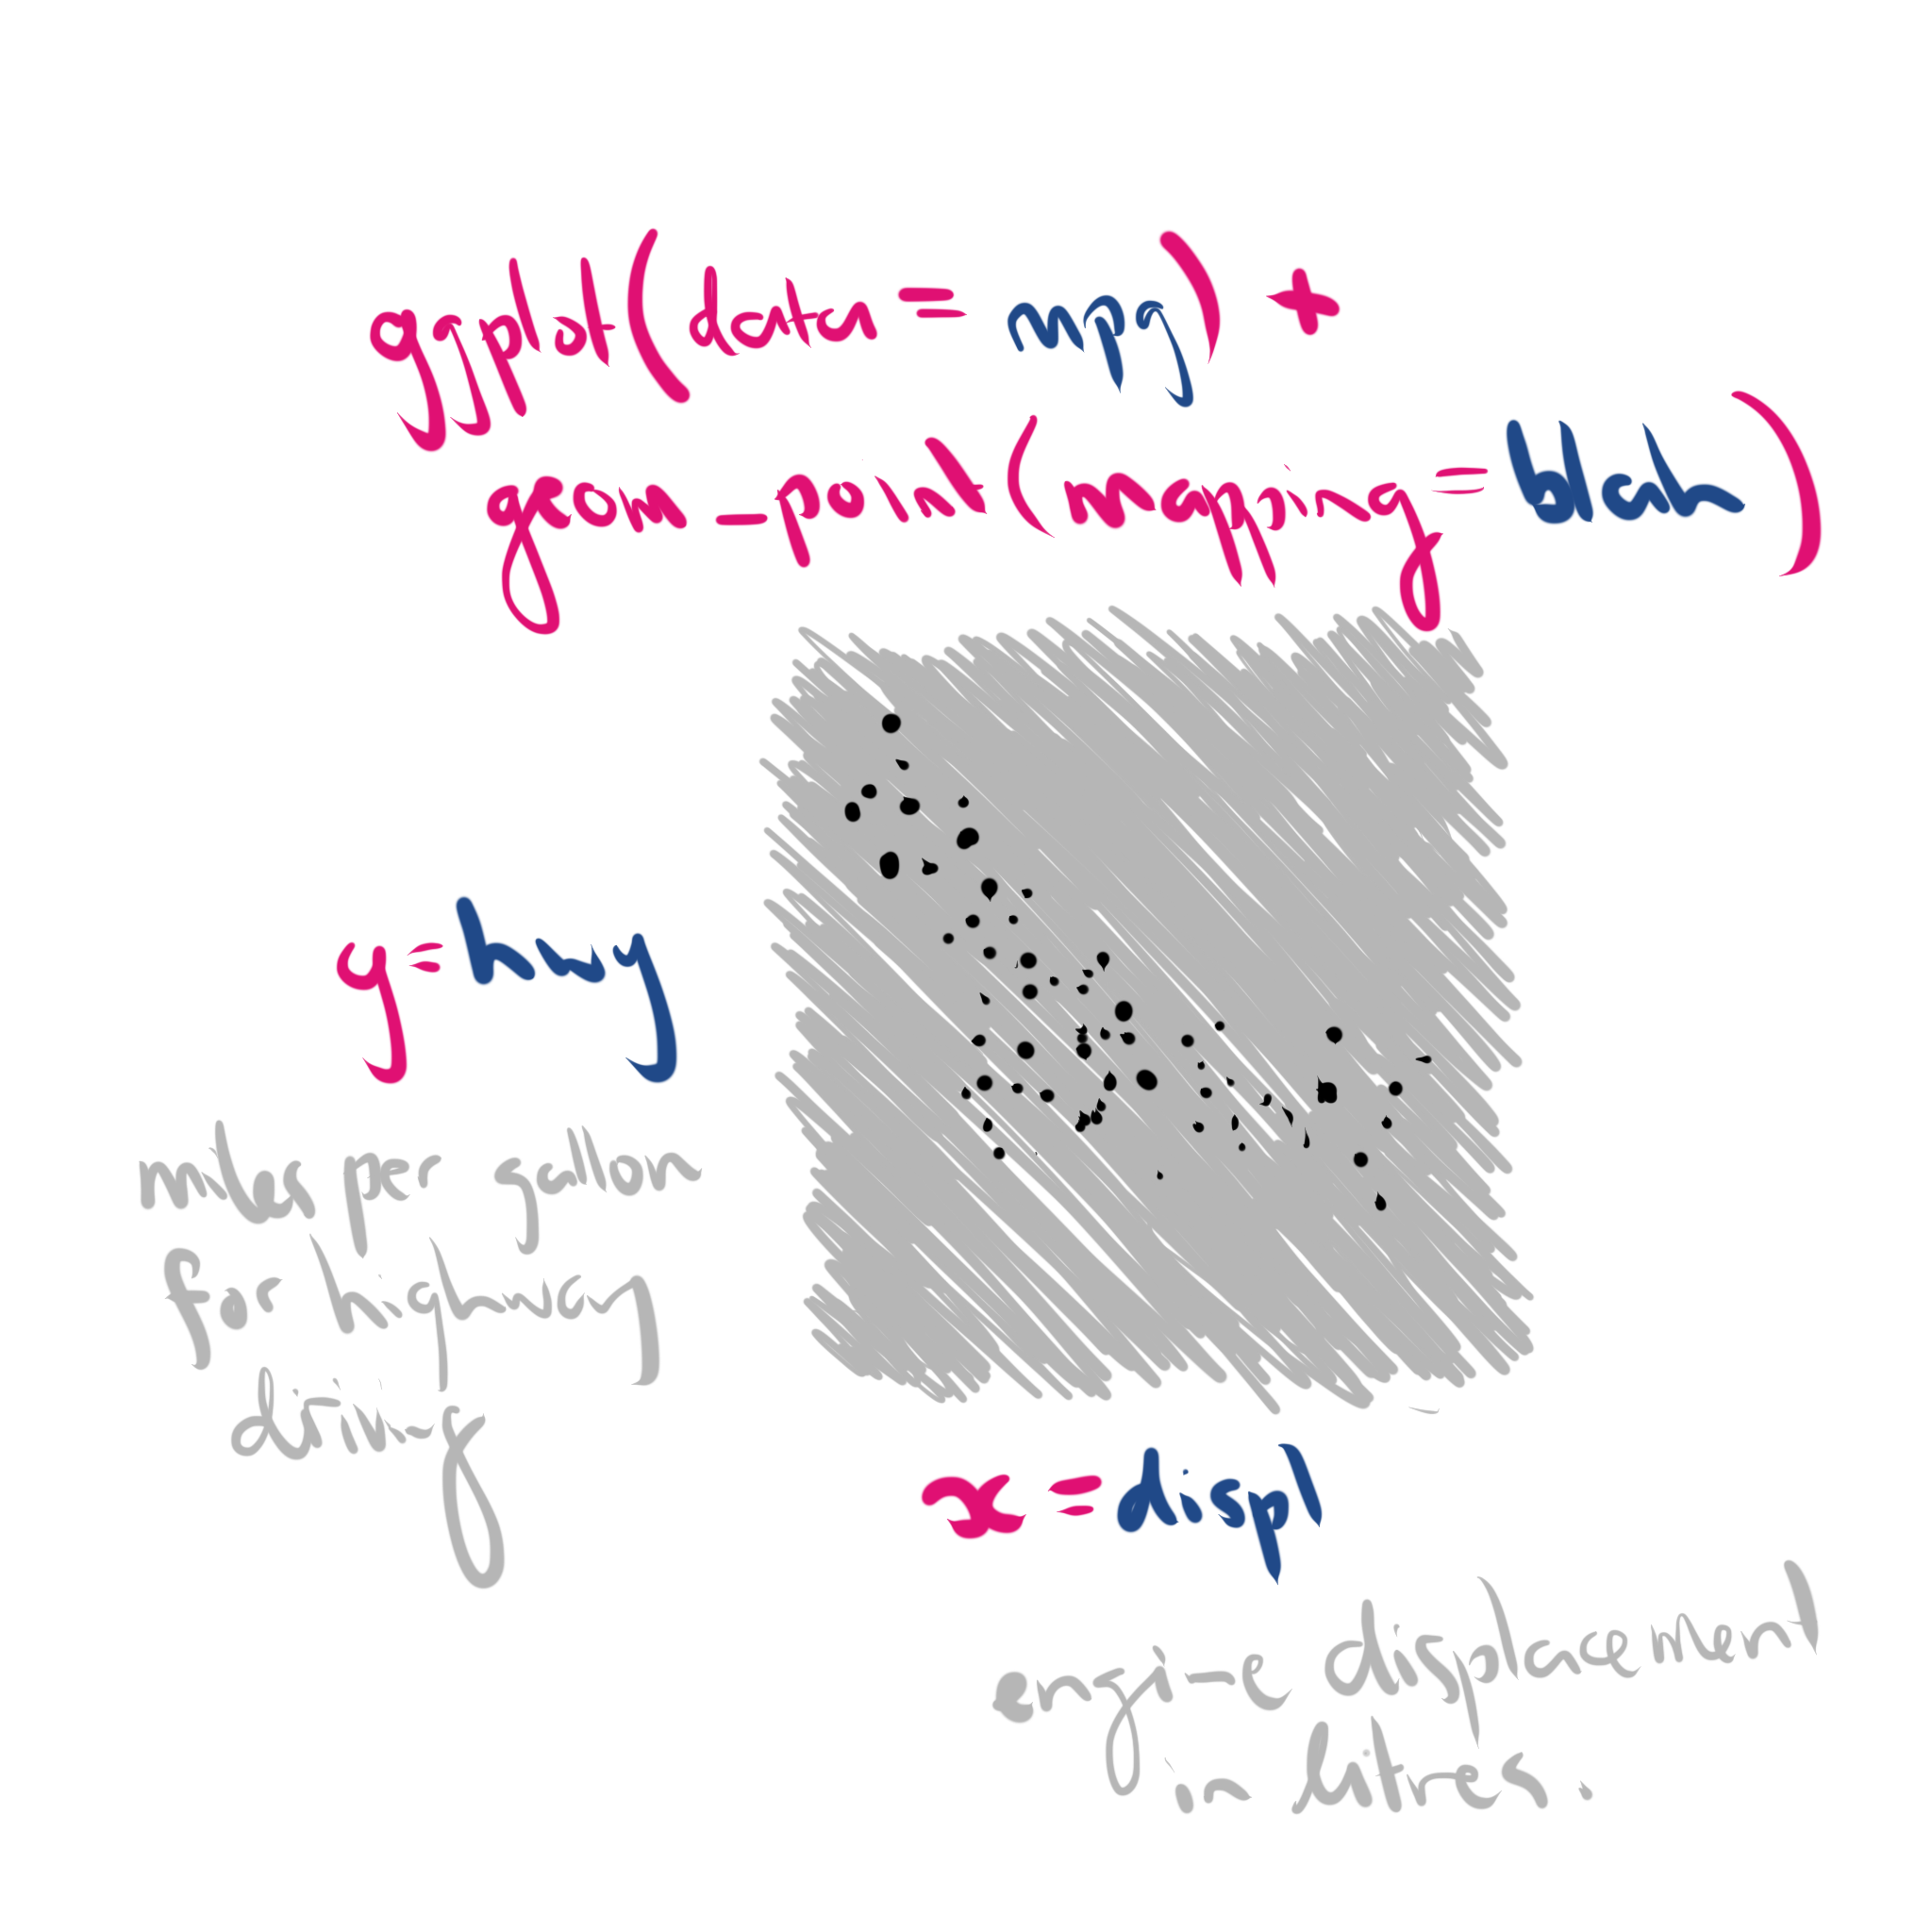 ggplot(data = mpg) +
geom_point(mapping = blah)
y = hwy
miles per gallon
for highway
driving
x = displ
engine displacement
in litres.